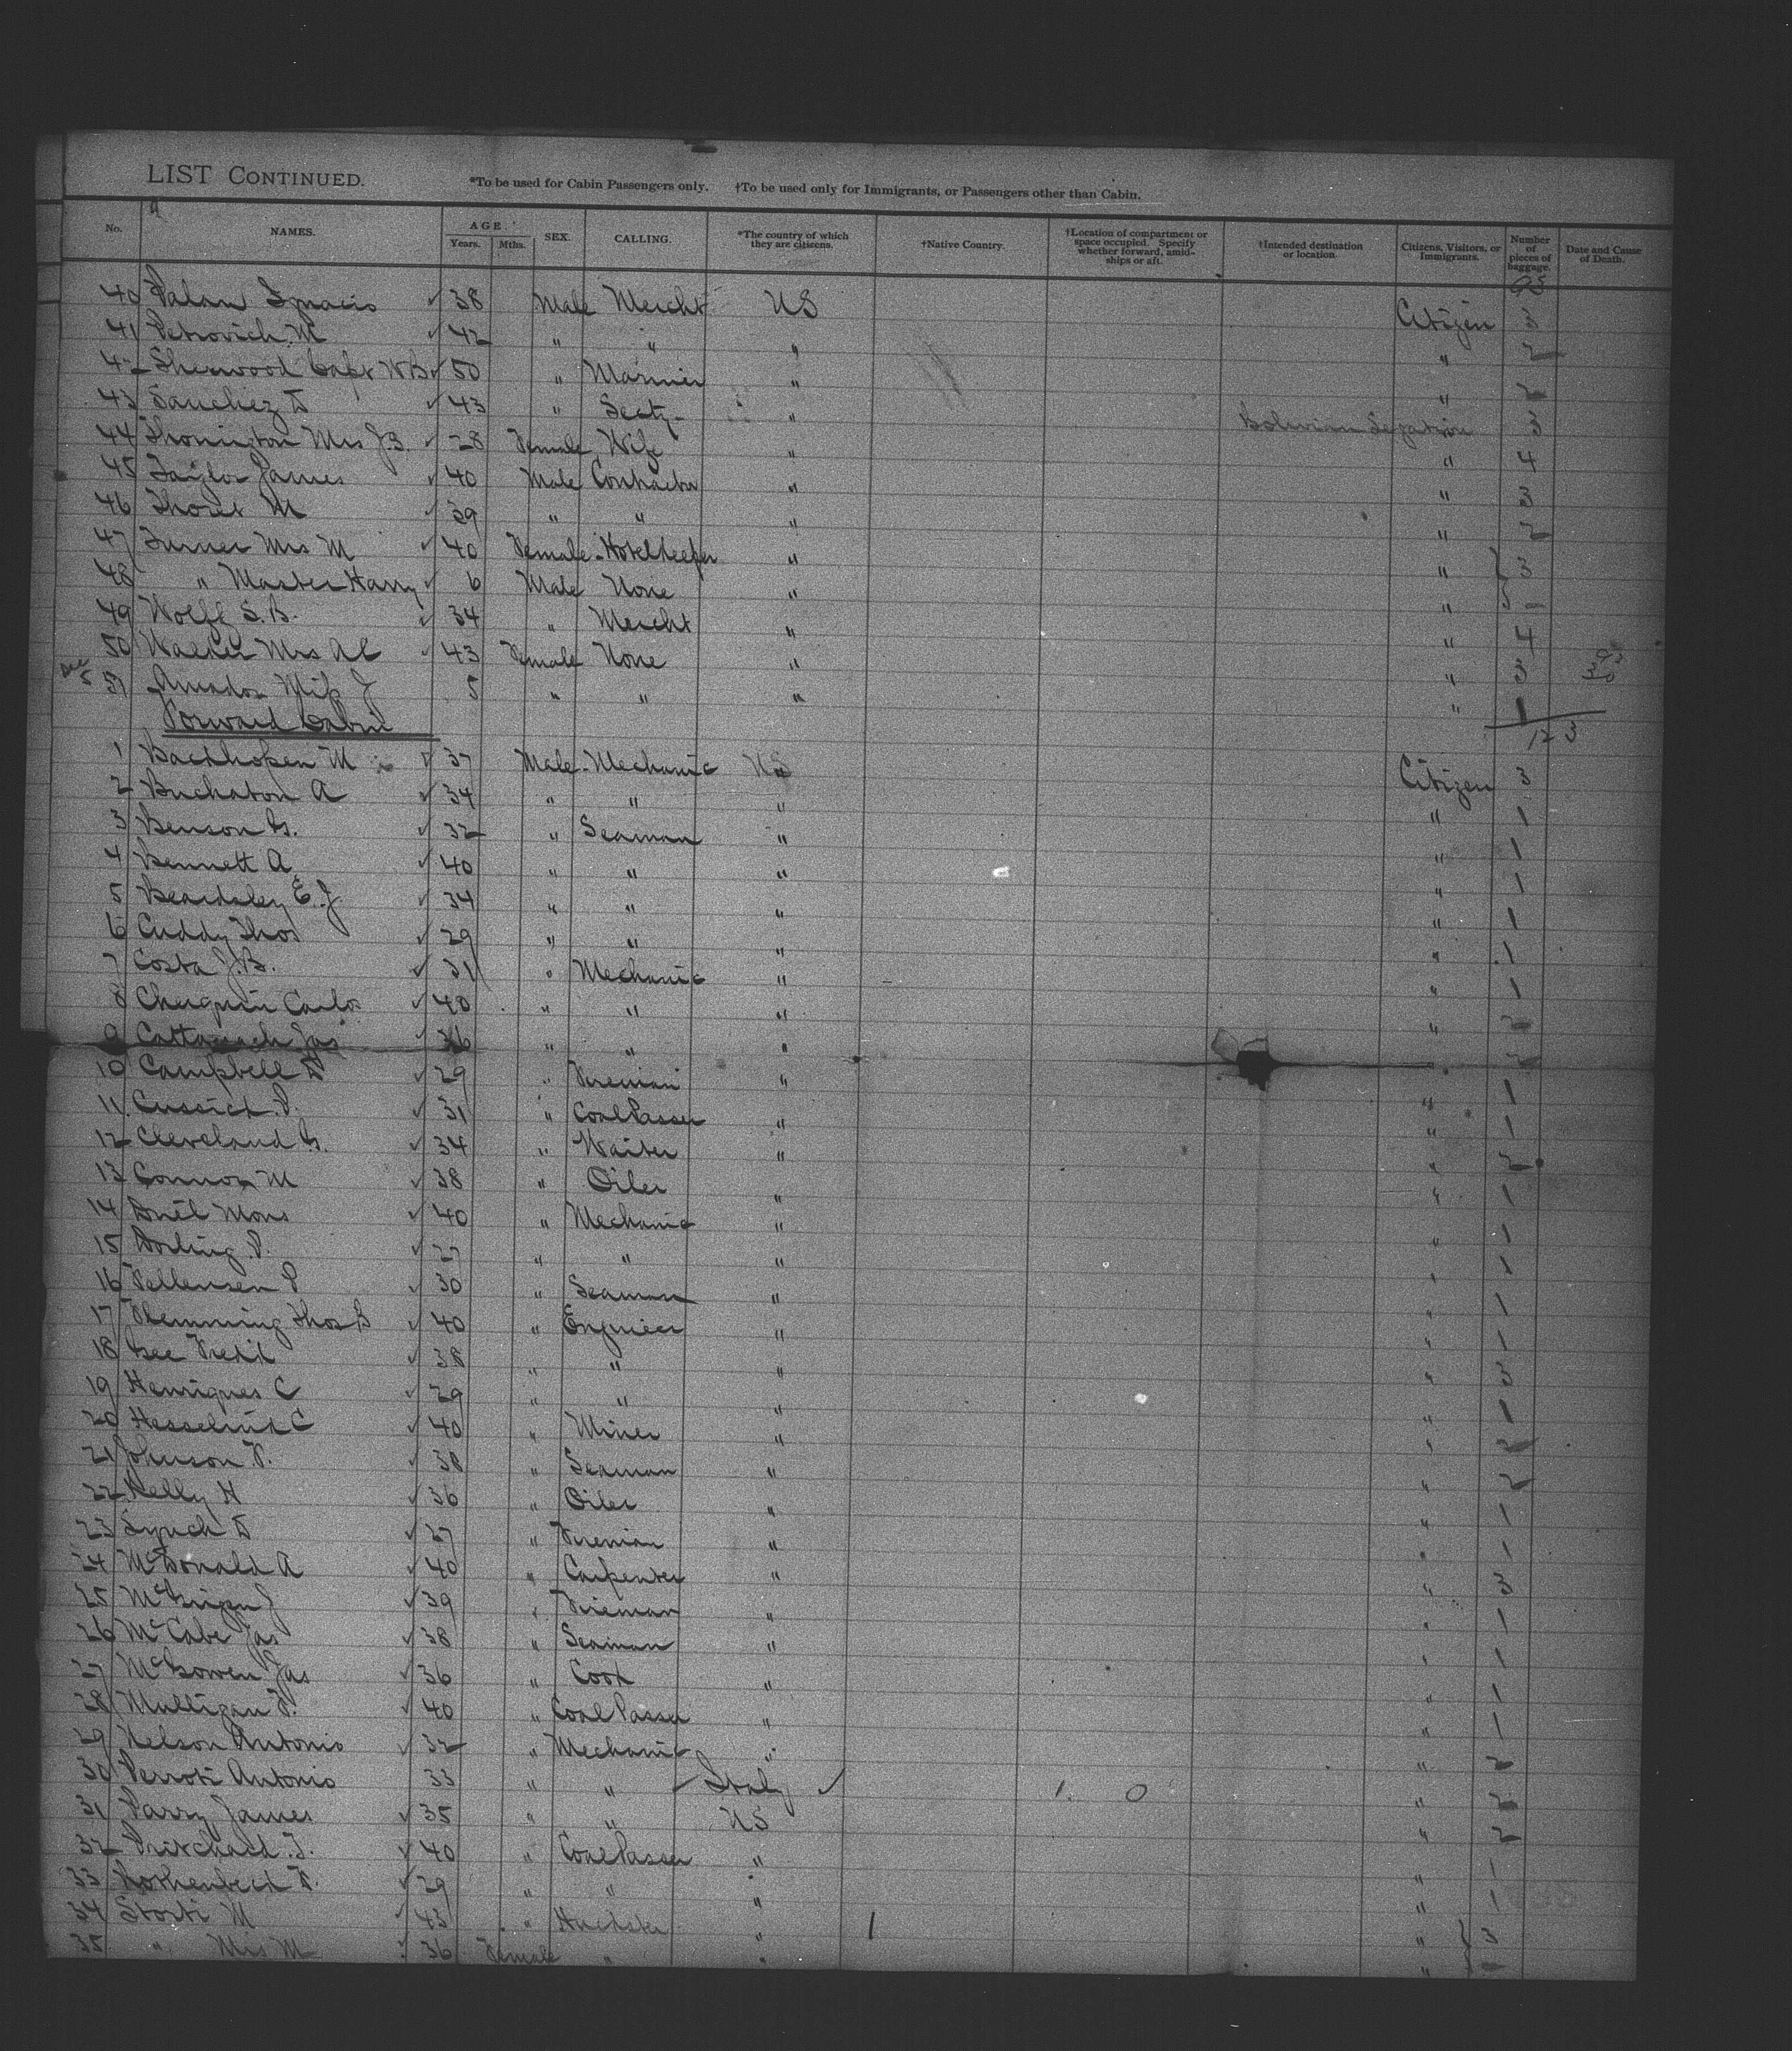 LIST CONTINUED. *To be used for Cabin Passengers only. †To be used only for Immigrants, or Passengers other than Cabin.
No. NAMES. AGE. Years. Mths. SEX. CALLING. *The country of which they are citizens. †Native Country. †Location of compartment or space occupied. Specify whether forward, amidships or aft. †Intended destination or location. Citizens, Visitors, or Immigrants. Number of pieces of baggage. Date and Cause of Death.
95
40 Palau Ignacio ✓ 38 Male Mercht US Citizen 3
41 Petrovich M ✓ 42 " " " " 2
42 Sherwood Capt W B ✓ 50 " Mariner " " 2
43 Sanchez D ✓ 43 " Secty " Bolivian Legation 3
44 Thornington Mrs J.B. ✓ 28 Female Wife " " 4
45 Taylor James ✓ 40 Male Contractor " " 3
46 Thoret M ✓ 39 " " " " 2
47 Turner Mrs M ✓ 40 Female Hotelkeeper " " 3
48 " Master Harry ✓ 6 Male None " " -
49 Wolff S.B. ✓ 34 " Mercht " " 4
50 Walker Mrs A C ✓ 43 Female None " " 3
51 Amador Miss J 5 " " " " 1
Forward Cabin 123
1 Backhofen M ✓ 37 Male Mechanic US Citizen 3
2 Buchaton A ✓ 34 " " " " 1
3 Benson G. ✓ 32 " Seaman " " 1
4 Bennett A. ✓ 40 " " " " 1
5 Beardsley E.J ✓ 34 " " " " 1
6 Cuddy Thos ✓ 29 " " " " 1
7 Costa J.B. ✓ 31 " Mechanic " " 1
8 Chuquin Carlos ✓ 40 " " " " 2
9 Cattanach Jas ✓ 36 " " " " 2
10 Campbell D ✓ 29 " Fireman " " 1
11 Cussick P. ✓ 31 " Coal Passer " " 1
12 Cleveland G. ✓ 34 " Waiter " " 2
13 Connor M ✓ 38 " Oiler " " 1
14 Duel Mons ✓ 40 " Mechanic " " 1
15 Dorling P. ✓ 27 " " " " 1
16 Fellensen P ✓ 30 " Seaman " " 1
17 Flemming Thos B ✓ 40 " Engineer " " 1
18 Gee Fredk ✓ 38 " " " " 3
19 Henriques C ✓ 29 " " " " 1
20 Hesselink C ✓ 40 " Miner " " 2
21 Johnson F. ✓ 38 " Seaman " " 2
22 Kelly H ✓ 36 " Oiler " " 1
23 Lynch D ✓ 27 " Fireman " " 1
24 McDonald A ✓ 40 " Carpenter " " 3
25 J ✓ 39 " Fireman " " 1
26 McCabe Jas ✓ 38 " Seaman " " 1
27 McGowen Jas ✓ 36 " Cook " " 1
28 Mulligan F. ✓ 40 " Coal Passer " " 1
29 Nelson Antonio ✓ 32 " Mechanic " " 2
30 Perroti Antonio 33 " " ✓ Italy ✓ 1. 0 " 2
31 Parry James ✓ 35 " " US " 2
32 Pritchard J. ✓ 40 " Coal Passer " " 1
33 Rothenbeck F. ✓ 29 " " " " 1
34 Storti M ✓ 43 " Huckster " 1 " 3
35 " Mrs M ✓ 36 Female " " " -